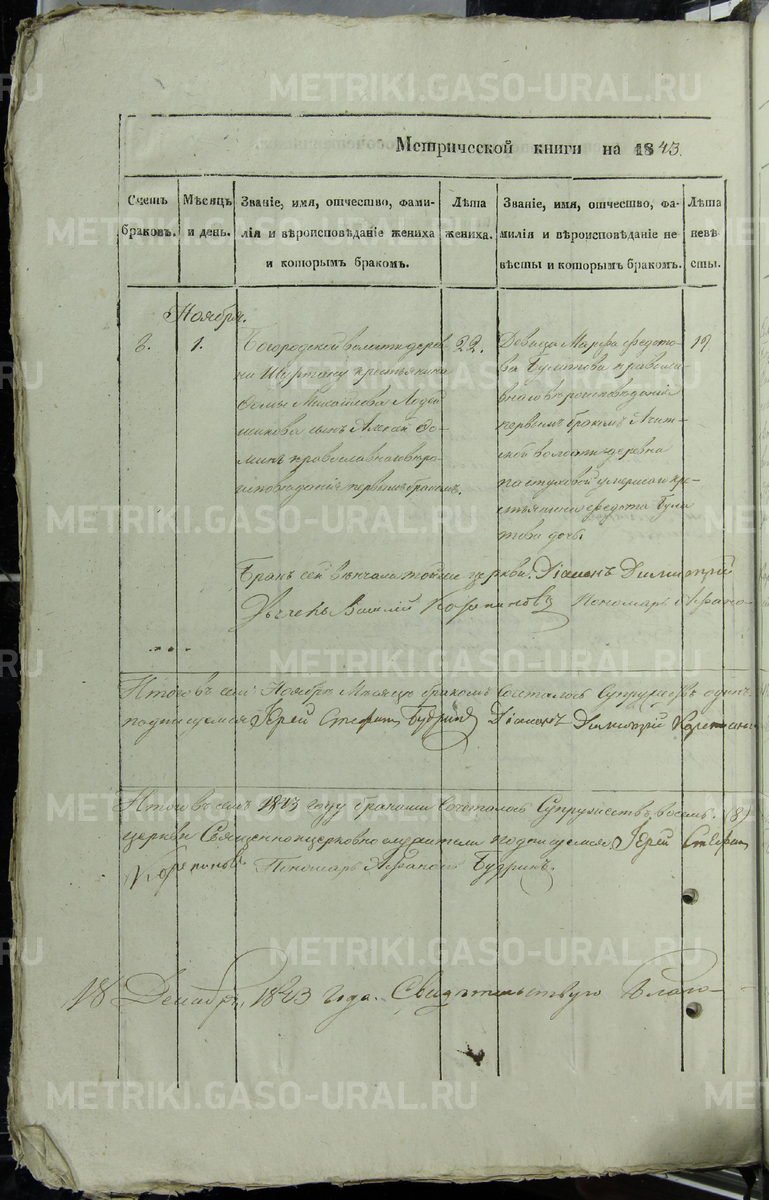 METRIKI.GASO-URAL.RU
Метрической книги на 1843.
Счетъ браковъ.
Мѣсяцъ и день.
Званіе, имя, отчество, фами-
лія и вѣроисповѣданіе жениха
и которымъ бракомъ.
Лѣта жениха.
Званіе, имя, отчество, фа-
милія и вѣроисповѣданіе не-
вѣсты и которымъ бракомъ.
Лѣта невѣ-
сты.
Ноября.
8. 1.
Богородской волости дерев
ни крестьянина
Михайлова
сынъ
православнаго вѣро
исповѣданія первымъ бракомъ.
22.
Девица Марфа Федото
ва Булатова православ
наго вѣроисповѣданія
первымъ бракомъ Ачит
ской волости деревни
умершаго кре
стьянина Федота Була
това дочь.
19
Бракъ сей вѣнчали той же церкви. Діаконъ Димитрій
Василій Пономарь
Итого въ семъ Ноябрѣ Мѣсяцѣ бракомъ Сочеталось Супружествъ одинъ
подписуемся Іерей Стефанъ Будринъ Діаконъ Димитрій
Итого въ семъ 1843 году браками Сочеталось Супружествъ восемь. (8)
церкви Священноцерковнослужители подписуемся Іерей Стефанъ
Пономарь Будринъ.
18 Декабря, 1843 года. Свидѣтельствую Благо-